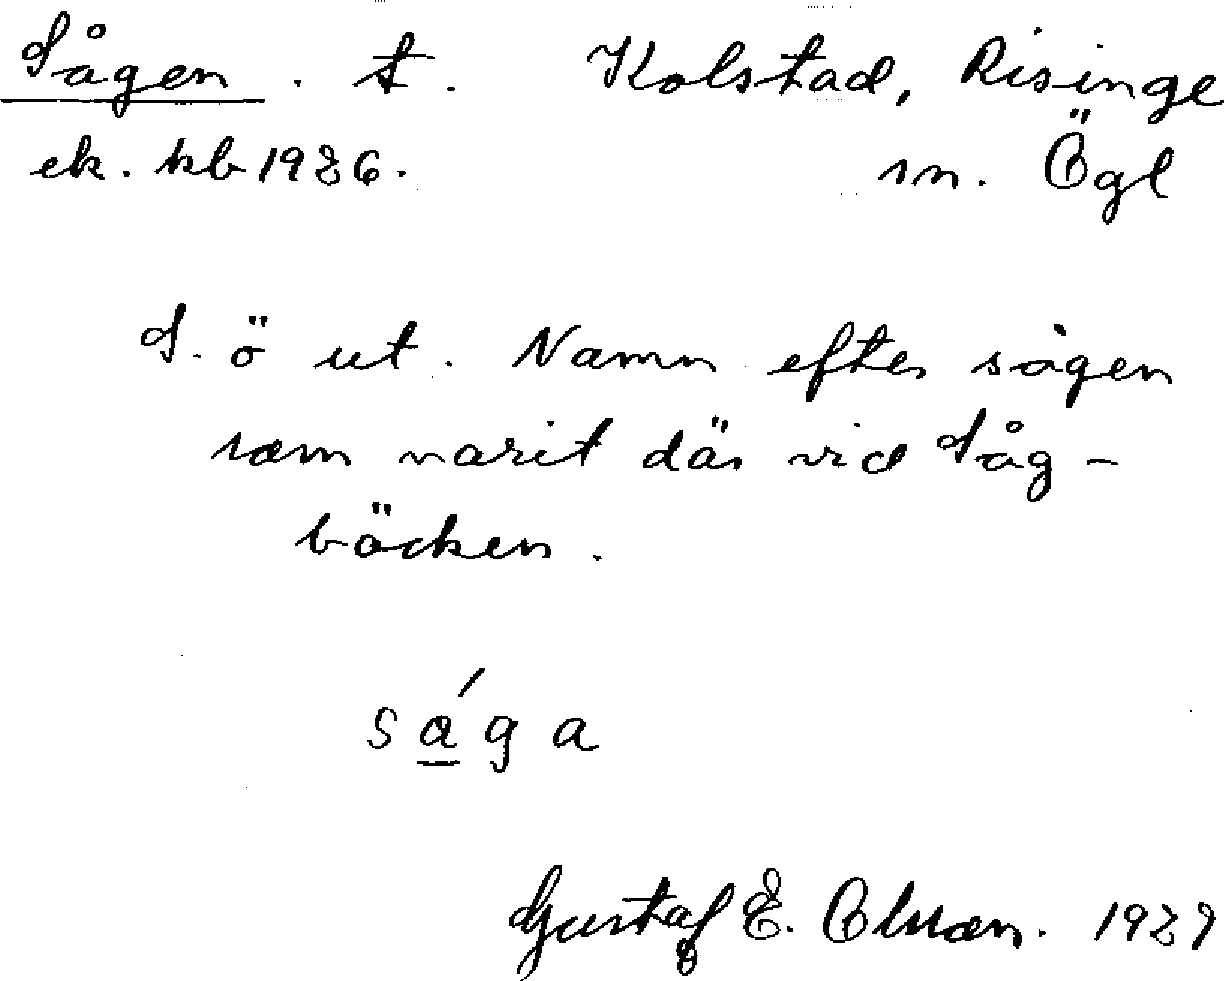 Sågen. t. Kolstad, Risinge
ek. kb 1926. sn. Ögl
S. ö ut. Namn efter sågen
som varit där vid Såg-
bäcken.
sá̲ga
Gustaf E. Olsson. 1929